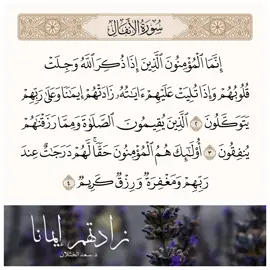 سُورَةُ الأَنفَالِ
إِنَّمَا الْمُؤْمِنُونَ الَّذِينَ إِذَا ذُكِرَ اللَّهُ وَجِلَتْ
قُلُوبُهُمْ وَإِذَا تُلِيَتْ عَلَيْهِمْ ءَايَٰتُهُۥ زَادَتْهُمْ إِيمَٰنًا وَعَلَىٰ رَبِّهِمْ
يَتَوَكَّلُونَ ٢ الَّذِينَ يُقِيمُونَ الصَّلَوٰةَ وَمِمَّا رَزَقْنَٰهُمْ
يُنفِقُونَ ٣ أُو۟لَٰٓئِكَ هُمُ الْمُؤْمِنُونَ حَقًّا لَّهُمْ دَرَجَٰتٌ عِندَ
رَبِّهِمْ وَمَغْفِرَةٌ وَرِزْقٌ كَرِيمٌ ٤
زادتهم ايمانا
د. سعد الخثلان